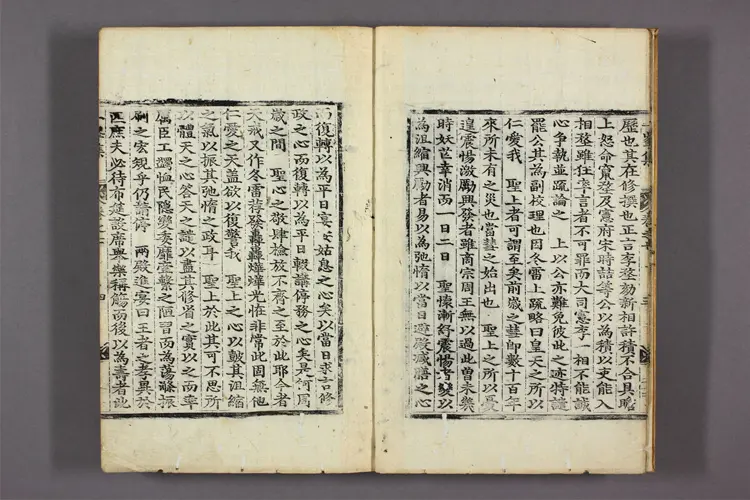 歷也其在修撰也正言李堥劾新相許積不合具瞻
上怒命竄堥及憲府宋時喆等公以為積以吏能入
相堥雖狂率言者不可罪而大司憲李一相不能誠
心爭執並疏論之 上以公亦難免彼此之迹特
罷公其為副校理也因冬雷上疏略曰皇天之所以
仁愛我 聖上者可謂至矣前歲之彗即數十百年
來所未有之災也當彗之始出也 聖上之所以憂
遑震惕激勵興發者雖商宗周王無以過此曾未幾
時妖芒幸消而一日二日 聖懷漸舒震惕者變以
為沮縮興勵者易以為弛惰以當日避殿減膳之心
而復轉以為平日宴安姑息之心矣以當日求言修
政之心而復轉以為平日輟講停務之心矣是何同
歲之間 聖心之敬肆操放不齊之至於此耶今者
天戒又作冬雷荐發轟轟燁燁光恠非常此固無他
仁愛之天蓋欲以復警我 聖上之心以鼓其沮縮
之氣以振其弛惰之政耳 聖上於此其可不思所
以體天之心答天之譴以盡其修省之實以之而率
礪臣工蠲恤民隱變委靡壅繫之陋習而為蕩滌振
刷之宏規乎仍請停 兩殿進宴曰王者之孝異於
匹庶夫必待布筵設席舉樂稱觴而後以為壽者此